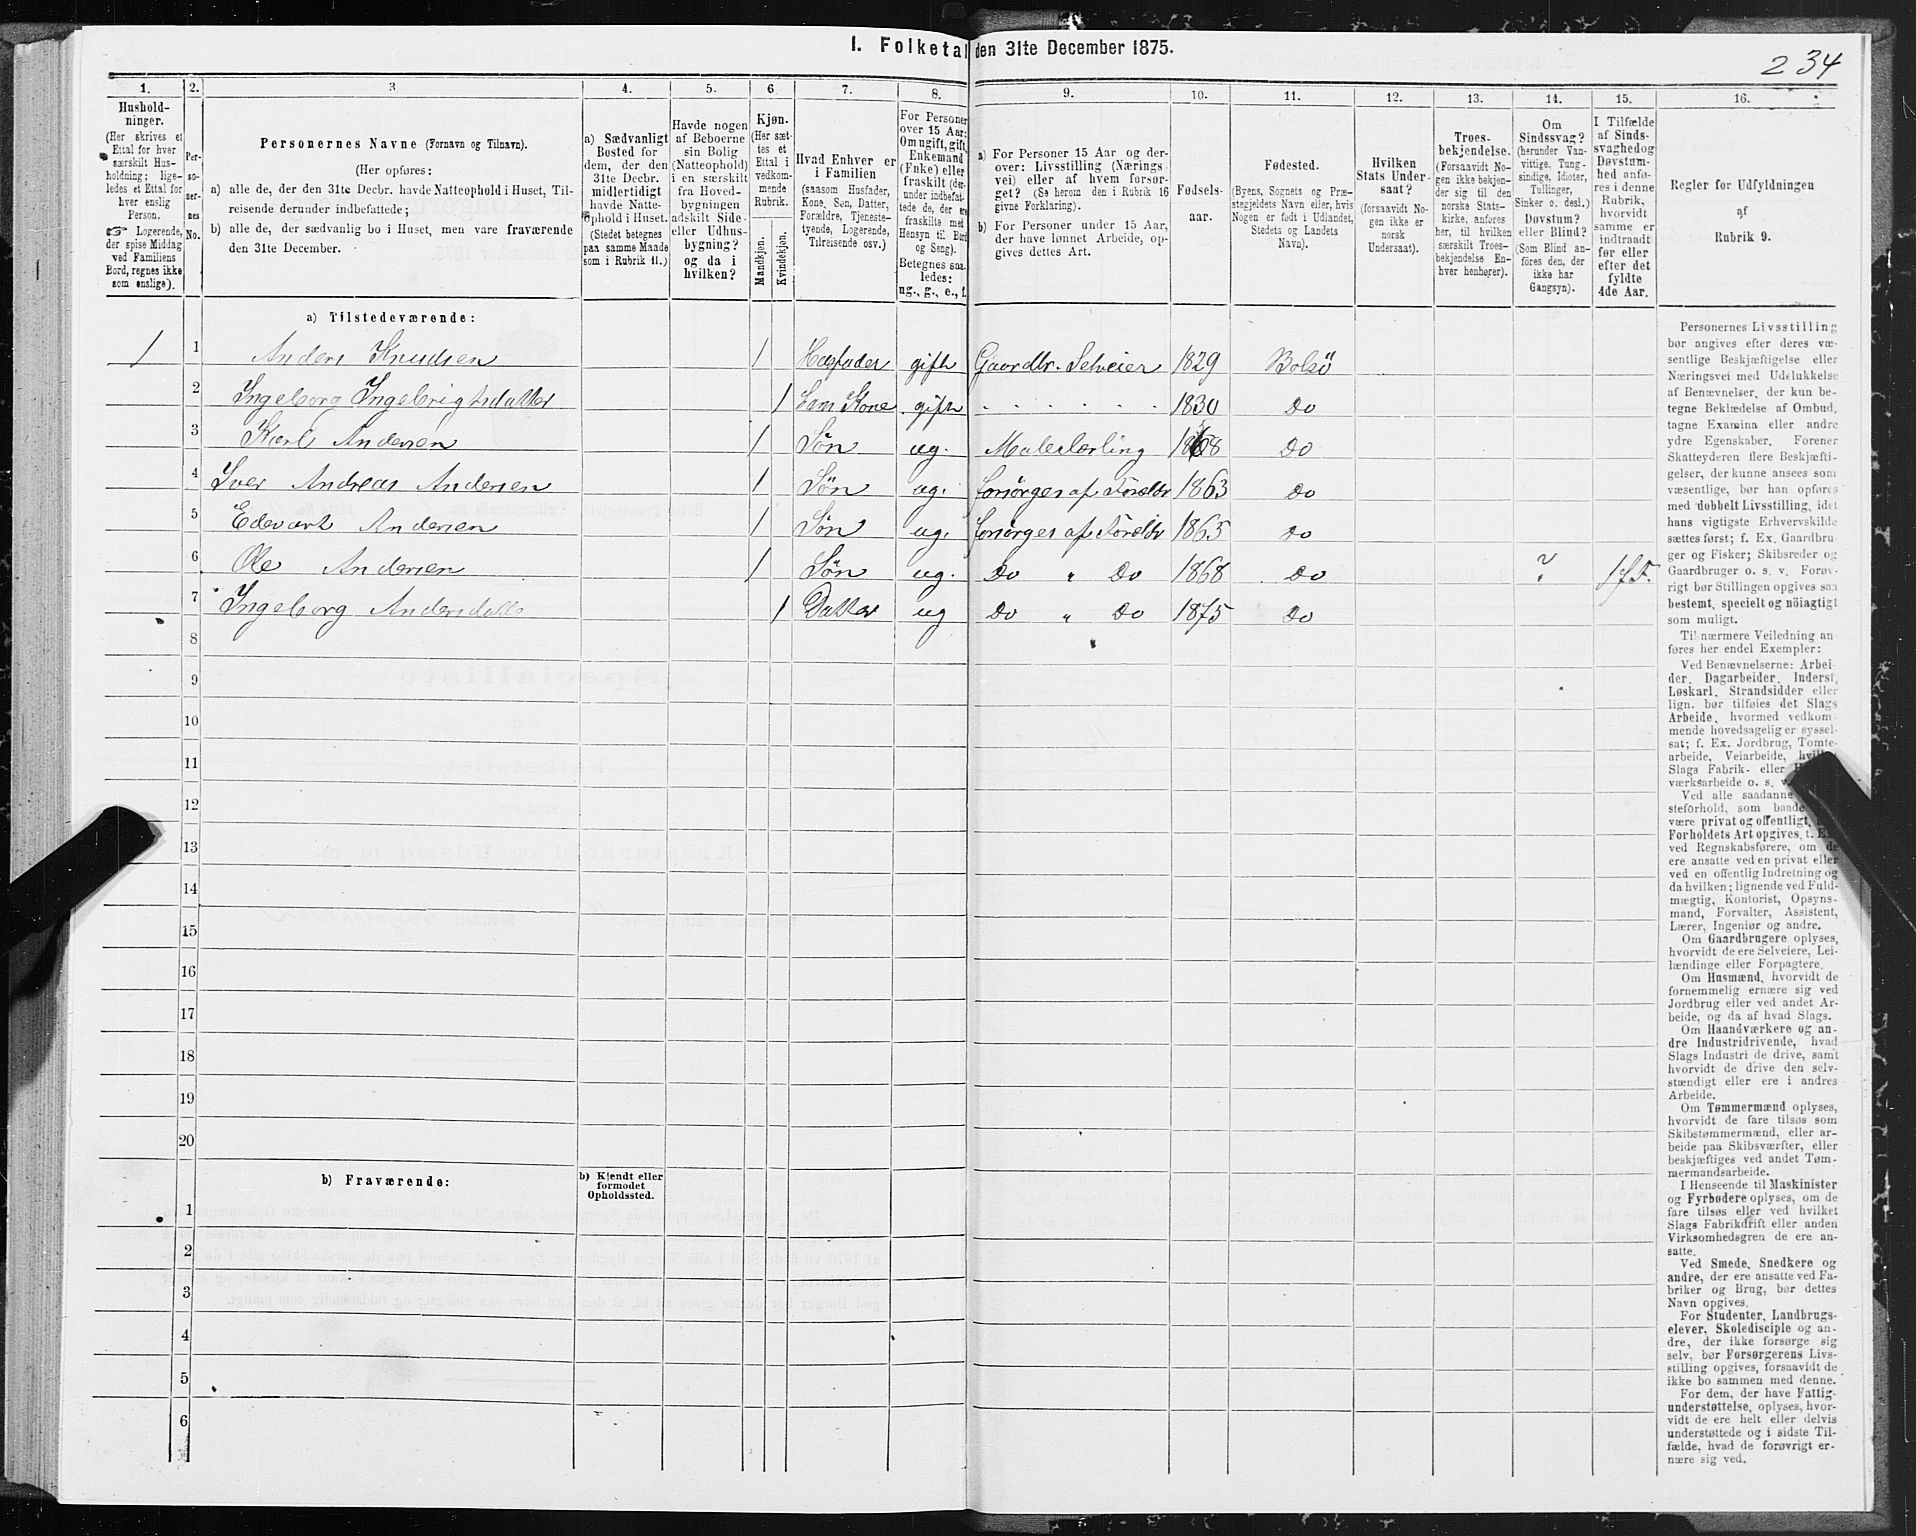 I. Folketal den 31te December 1875.
234
1. 2. 3. 4. 5. 6 7. 8. 9. 10. 11. 12. 13. 14. 15. 16.
Hushold-
ninger.
(Her skrives et
Ettal for hver
særskilt Hus-
holdning; lige-
ledes et Ettal for
hver enslig
Person.
☞ Logerende,
der spise Middag
ved Familiens
Bord, regnes ikke
som enslige).
Per-
so-
ner-
nes
No.
Personernes Navne (Fornavn og Tilnavn).
(Her opføres:
a) alle de, der den 31te Decbr. havde Natteophold i Huset, Til-
reisende derunder indbefattede;
b) alle de, der sædvanlig bo i Huset, men vare fraværende
den 31te December.
a) Sædvanligt
Bosted for
dem, der den
31te Decbr.
midlertidigt
havde Natte-
ophold i Huset.
(Stedet betegnes
paa samme Maade
som i Rubrik 11.)
Havde nogen
af Beboerne
sin Bolig
(Natteophold)
i en særskilt
fra Hoved-
bygningen
adskilt Side-
eller Udhus-
bygning?
og da i
hvilken?
Kjøn.
(Her sæt-
tes et
Ettal i
vedkom-
mende
Rubrik.
Mandkjøn.
Kvindekjøn.
Hvad Enhver er
i Familien
(saasom Husfader,
Kone, Søn, Datter,
Forældre, Tjeneste-
tyende, Logerende,
Tilreisende osv.)
For Personer
over 15 Aar:
Om ugift, gift,
Enkemand
(Enke) eller
fraskilt (der-
under indbefat-
tede de, der ere
fraskilte med
Hensyn til Bord
og Seng).
Betegnes saa-
ledes:
ug., g., e., f.
a) For Personer 15 Aar og der-
over: Livsstilling (Nærings-
vei) eller af hvem forsør-
get? (Se herom den i Rubrik 16
givne Forklaring).
b) For Personer under 15 Aar,
der have lønnet Arbeide, op-
gives dettes Art.
Fødsels-
aar.
Fødested.
(Byens, Sognets og Præ-
stegjeldets Navn eller, hvis
Nogen er født i Udlandet,
Stedets og Landets
Navn).
Hvilken
Stats Under-
saat?
(forsaavidt No-
gen ikke er
norsk
Undersaat).
Troes-
bekjendelse.
(Forsaavidt No-
gen ikke bekjen-
der sig til den
norske Stats-
kirke, anføres
her, til hvilken
særskilt Troes-
bekjendelse En-
hver henhører).
Om
Sindssvag?
(herunder Van-
vittige, Tung-
sindige, Idioter,
Tullinger,
Sinker o. desl.)
Døvstum?
eller Blind?
(Som Blind an-
føres den, der
ikke har
Gangsyn).
I Tilfælde
af Sinds-
svaghedog
Døvstum-
hed anfø-
res i denne
Rubrik,
hvorvidt
samme er
indtraadt
før eller
efter det
fyldte
4de Aar.
Regler før Udfyldningen
af
Rubrik 9.
a) Tilstedeværende:
1 1 Anders Knudsen 1 Husfader gift Gaardbr. Selveier 1829 Bolsö
2 Ingeborg Ingebrigtsdatter 1 Hans Kone gift . . . . . . . 1830 Do
3 Karl Andersen 1 Søn ug. Malerlærling Do
4 Iver Andreas Andersen 1 Søn ug. forsørges af Foræld. 1863 Do
5 Edevart Andersen 1 Søn ug. forsørges af Foræld. 1865 Do
6 Ole Andersen 1 Søn ug. Do " Do 1868 Do ? 1 f F.
7 Ingeborg Andersdatte 1 Datter ug Do " Do 1875 Do
8
9
10
11
12
13
14
15
16
17
18
19
20
b) Fraværende:
b) Kjendt eller
formodet
Opholdssted.
1
2
3
4
5
6
Personernes Livsstilling
bør angives efter deres væ-
sentlige Beskjæftigelse eller
Næringsvei med Udelukkelse
af Benævnelser, der kun be-
tegne Beklædelse af Ombud,
tagne Examina eller andre
ydre Egenskaber. Forener
Skatteyderen flere Beskjæfti-
gelser, der kunne ansees som
væsentlige, bør han opføres
med dobbelt Livsstilling, idet
hans vigtigste Erhvervskilde
sættes først; f. Ex. Gaardbru-
ger og Fisker; Skibsreder og
Gaardbruger o. s. v. Forøv-
rigt bør Stillingen opgives saa
bestemt, specielt og nøiagtigt
som muligt.
Til nærmere Veiledning an-
føres her endel Exempler:
Ved Benævnelserne: Arbei-
der, Dagarbeider, Inderst,
Løskarl, Strandsidder eller
lign. bør tilføies det Slags
Arbeide, hvormed vedkom-
mende hovedsagelig er syssel-
sat; f. Ex. Jordbrug, Tomte-
arbeide, Veiarbeide,
Slags Fabrik- eller
værksarbeide o. s.
Ved alle saadanne
steforhold, som baade
være privat og offentligt,
Forholdets Art opgives, t.
ved Regnskabsførere, om de
ere ansatte ved en privat eller
ved en offentlig Indretning og
da hvilken; lignende ved Fuld-
mægtig, Kontorist, Opsyns-
mand, Forvalter, Assistent,
Lærer, Ingeniør og andre.
Om Gaardbrugere oplyses,
hvorvidt de ere Selveiere, Lei-
lændinge eller Forpagtere.
Om Husmænd, hvorvidt de
fornemmelig ernære sig ved
Jordbrug eller ved andet Ar-
beide, og da af hvad Slags.
Om Haandværkere og an-
dre Industridrivende, hvad
Slags Industri de drive, samt
hvorvidt de drive den selv-
stændigt eller ere i andres
Arbeide.
Om Tømmermænd oplyses,
hvorvidt de fare tilsøs som
Skibstømmermænd, eller ar-
beide paa Skibsværfter, eller
beskjæftiges ved andet Tøm-
mermandsarbeide.
I Henseende til Maskinister
og Fyrbødere oplyses, om de
fare tilsøs eller ved hvilket
Slags Fabrikdrift eller anden
Virksomhedsgren de ere an-
satte.
Ved Smede, Snedkere og
andre, der ere ansatte ved Fa-
briker og Brug, bør dettes
Navn opgives.
For Studenter, Landbrugs-
elever, Skoledisciple og an-
dre, der ikke forsørge sig
selv, bør Forsørgerens Livs-
stilling opgives, forsaavidt de
ikke bo sammen med denne.
For dem, der have Fattig-
understøttelse, oplyses, hvor-
vidt de ere helt eller delvis
understøttede og i sidste Til-
fælde, hvad de forøvrigt er-
nære sig ved.